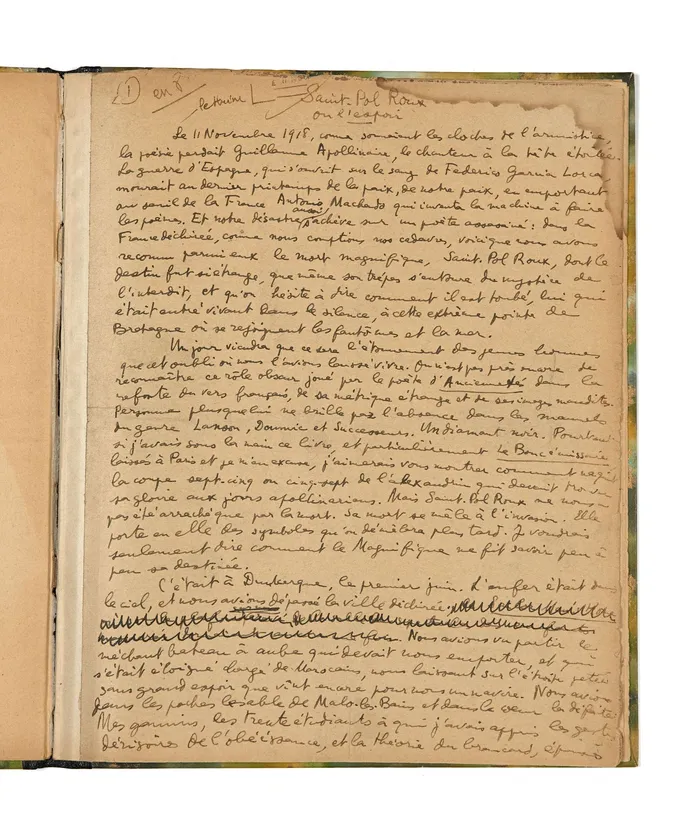 1 en 8
Saint-Pol Roux
ou l'espoir
Le 11 Novembre 1918, comme sonnaient les cloches de l'armistice,
la poésie perdait Guillaume Apollinaire, le chanteur à la tête étoilée.
La guerre d'Espagne, qui s'ouvrit sur le sang de Federico Garcia Lorca,
mourait au dernier printemps de la paix, de notre paix, en emportant
au seuil de la France Antonio Machado qui inventa la machine à faire
les poèmes. Et notre désastre aussi s'achève sur un poète assassiné : dans la
France déchirée, comme nous comptions nos cadavres, voici que nous avons
reconnu parmi eux le mort magnifique, Saint-Pol Roux, dont le
destin fut si étrange, que même son trépas s'entoure du mystère de
l'interdit, et qu'on hésite à dire comment il est tombé, lui qui
était entré vivant dans le silence, à cette extrême pointe de
Bretagne où se rejoignent les fantômes et la mer.
Un jour viendra que ce sera l'étonnement des jeunes hommes
que cet oubli où nous l'avions laissé vivre. On n'est pas près encore de
reconnaître ce rôle obscur joué par le poète d'Anciennetés dans la
refonte du vers français, de sa métrique étrange et de ses images maudites.
Personne plus que lui ne brille par l'absence dans les manuels
du genre Lanson, Doumic et Successeurs. Un diamant noir. Pourtant
si j'avais sous la main ce livre, et particulièrement Le Bouc émissaire
laissés à Paris et je m'en excuse, j'aimerais vous montrer comment naquit
la coupe sept-cinq ou cinq-sept de l'alexandrin qui devait trouver
sa gloire aux jours apollinariens. Mais Saint-Pol Roux ne nous a
pas été arraché que par la mort. Sa mort se mêle à l'invasion. Elle
porte en elle des symboles qu'on démêlera plus tard. Je voudrais
seulement dire comment le Magnifique me fit savoir peu à
peu sa destinée.
C'était à Dunkerque, le premier juin. L'enfer était dans
le ciel, et nous avions dépassé la ville déchirée.
Nous avions vu partir le
méchant bateau à aube qui devait nous emporter, et qui
s'était éloigné chargé de Marocains, nous laissant sur l'étroite jetée
sans grand espoir que vînt encore pour nous un navire. Nous avions
dans les poches le sable de Malo-les-Bains et dans le cœur la défaite
Mes gamins, les trente étudiants à qui j'avais appris les gestes
dérisoires de l'obéissance, et la théorie du brancard, épuisés